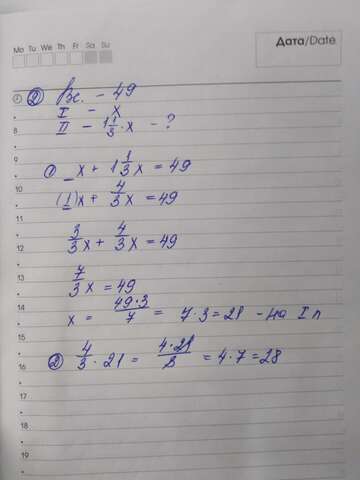 Mo Tu We Th Fr Sa Su
Дата/Date
② Вс. - 49
I - x
8
II - 1 1/3 · x - ?
9
① _ x + 1 1/3 x = 49
10
(1)x + 4/3 x = 49
11
12
3/3 x + 4/3 x = 49
13
7/3 x = 49
14
x = 49·3/7 = 7·3=21 - на I п
15
② 4/3 · 21 = 4·21/3 = 4·7=28
16
17
18
19